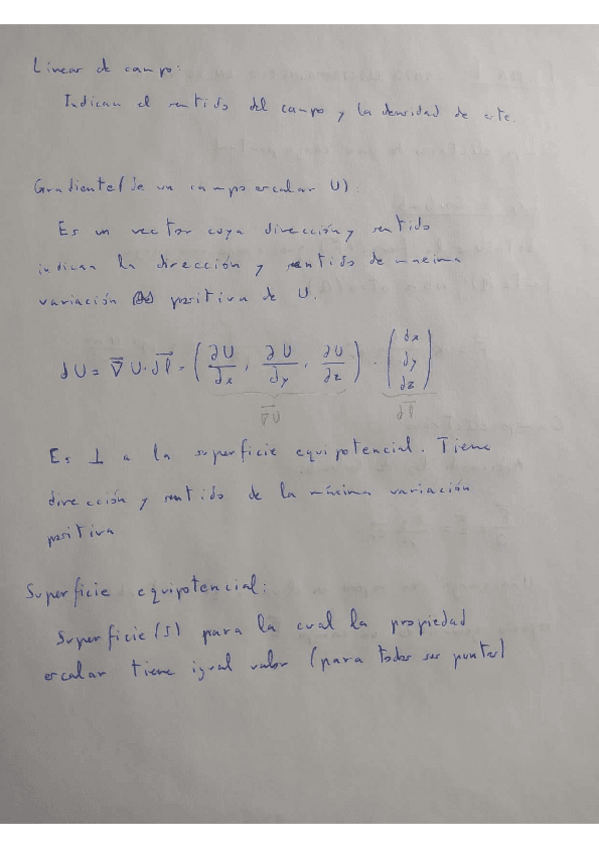 Líneas de campo:
Indican el sentido del campo y la densidad de este.
Gradiente (de un campo escalar U):
Es un vector cuya dirección y sentido
indican la dirección y sentido de máxima
variación positiva de U.
dU = ∇U · dl = (∂U/dx, ∂U/dy, ∂U/dz) · (dx dy dz)
∇U dl
Es ⊥ a la superficie equipotencial. Tiene
dirección y sentido de la máxima variación
positiva
Superficie equipotencial:
Superficie (S) para la cual la propiedad
escalar tiene igual valor (para todos sus puntos)